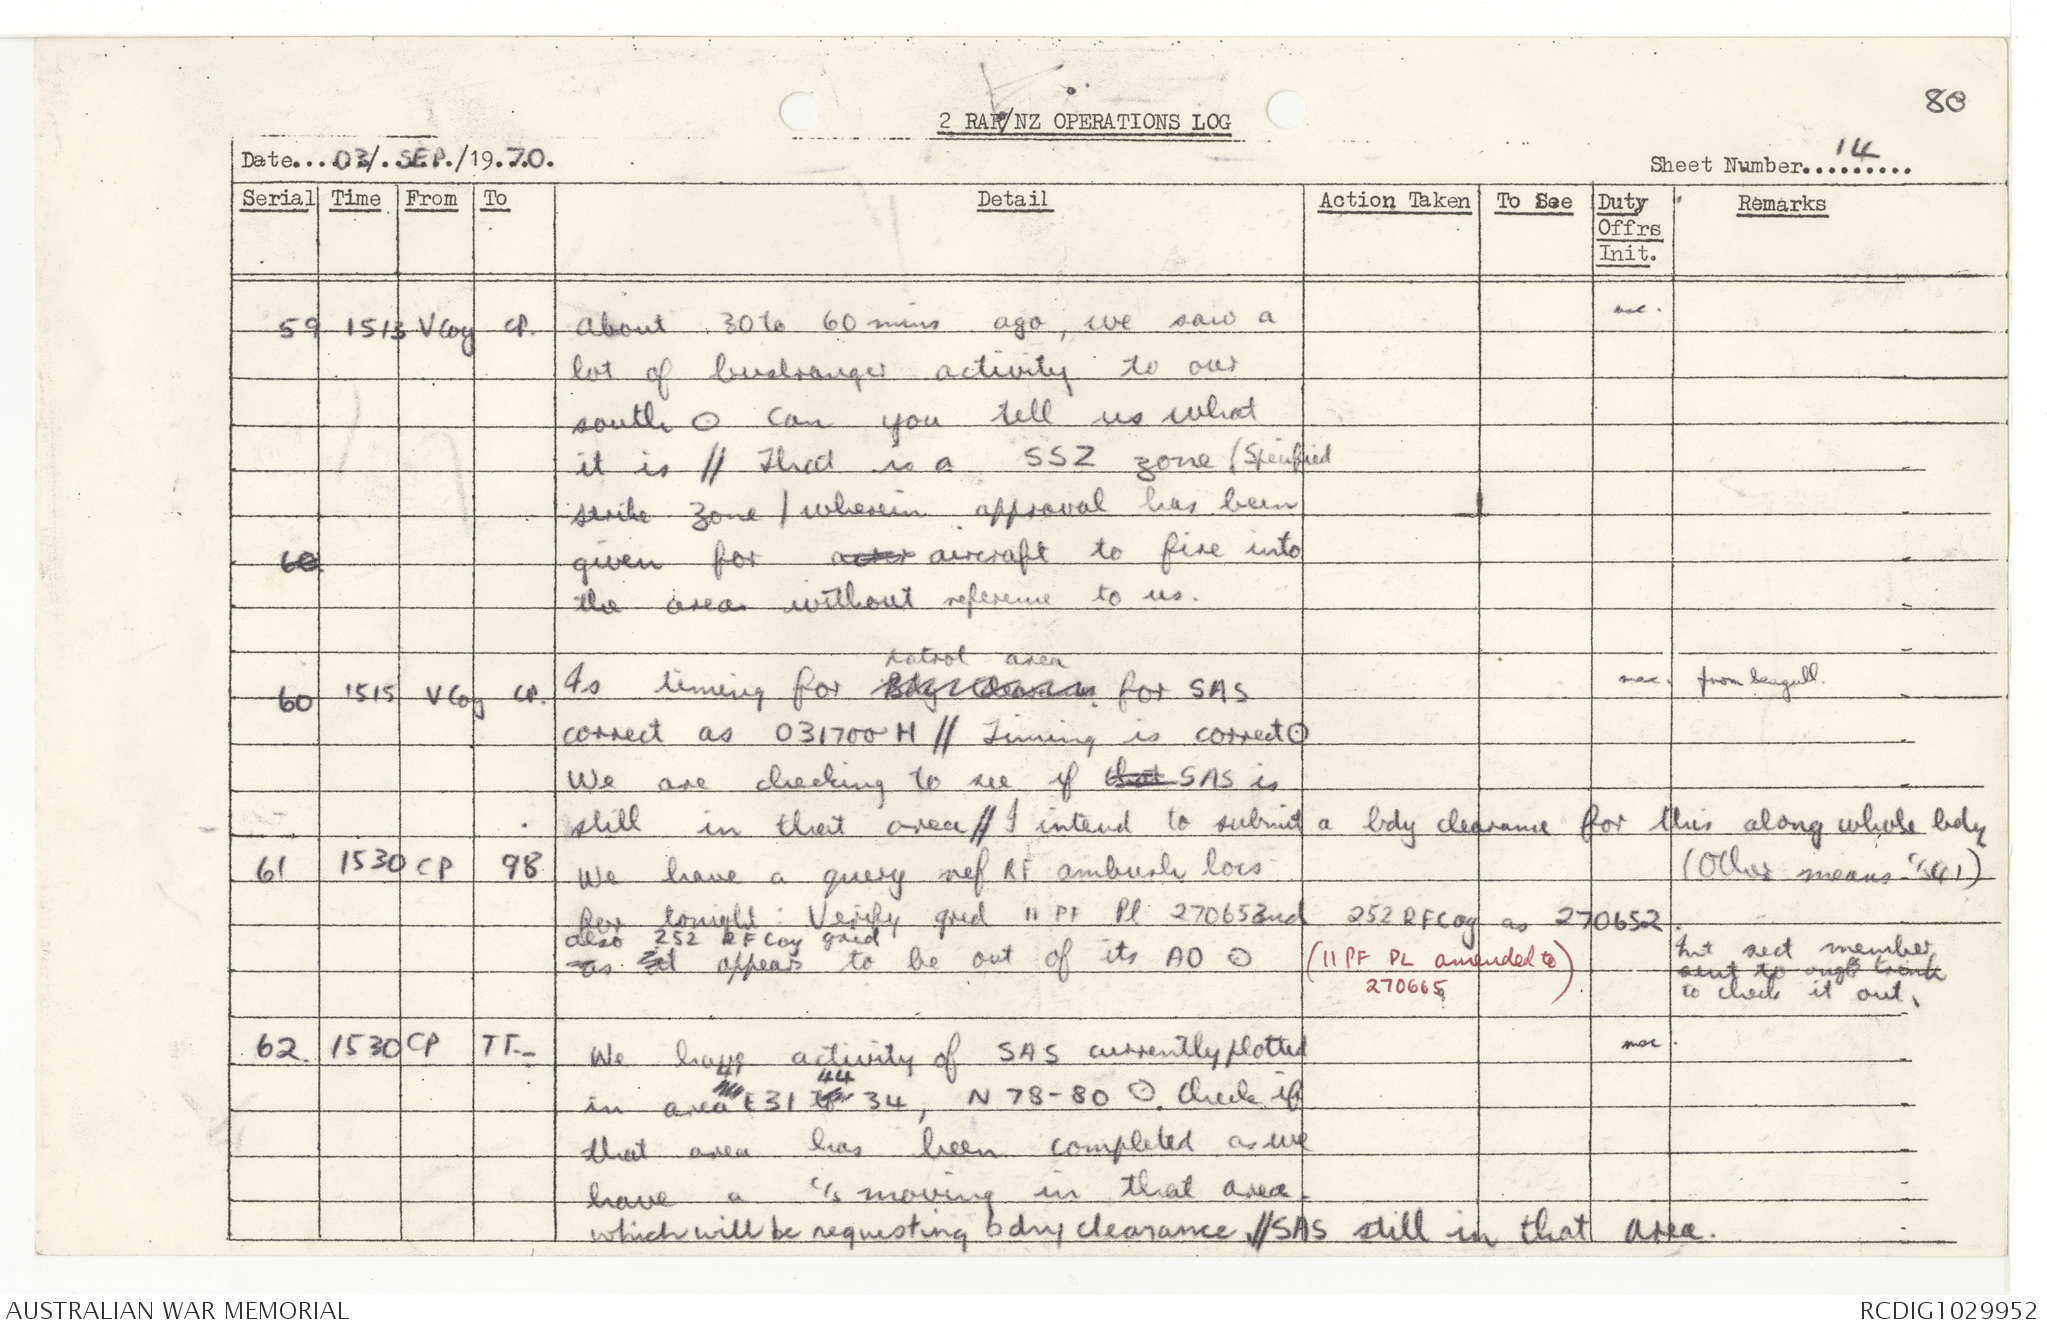 80
2 RAR/NZ OPERATIONS LOG
Date... 03/. SEP./19.70.
Sheet Number... 14
Serial Time From To Detail Action Taken To See Duty Offrs Init. Remarks
59 1513 V Coy CP. About 30 to 60 mins ago, we saw a
lot of bushranger activity to our
south ⊙ Can you tell us what
it is // That is a SSZ zone / Specified
strike zone / wherein approval has been
60 given for aircraft to fire into
the area without reference to us.
60 1515 V Coy CP. Is timing for patrol area for SAS
correct as 031700H // Timing is correct ⊙
We are checking to see if that SAS is
still in that area // I intend to submit a bdy clearance for this along whole bdy
61 1530 CP 98 We have a query ref RF ambush locs (Other means
for tonight: Verify grid 11 PF Pl 270652 and 252 RF Coy as 270652.
also 252 RF Coy grid
as it appears to be out of its AO ⊙ (11 PF PL amended to 270665)
Int sect member
to check it out.
62. 1530 CP TT We have activity of SAS currently plotted
in area E31 44 34, N 78-80 ⊙. Check if
that area has been completed as we
have a c/s moving in that area
which will be requesting bdry clearance // SAS still in that area.
AUSTRALIAN WAR MEMORIAL
RCDIG1029952